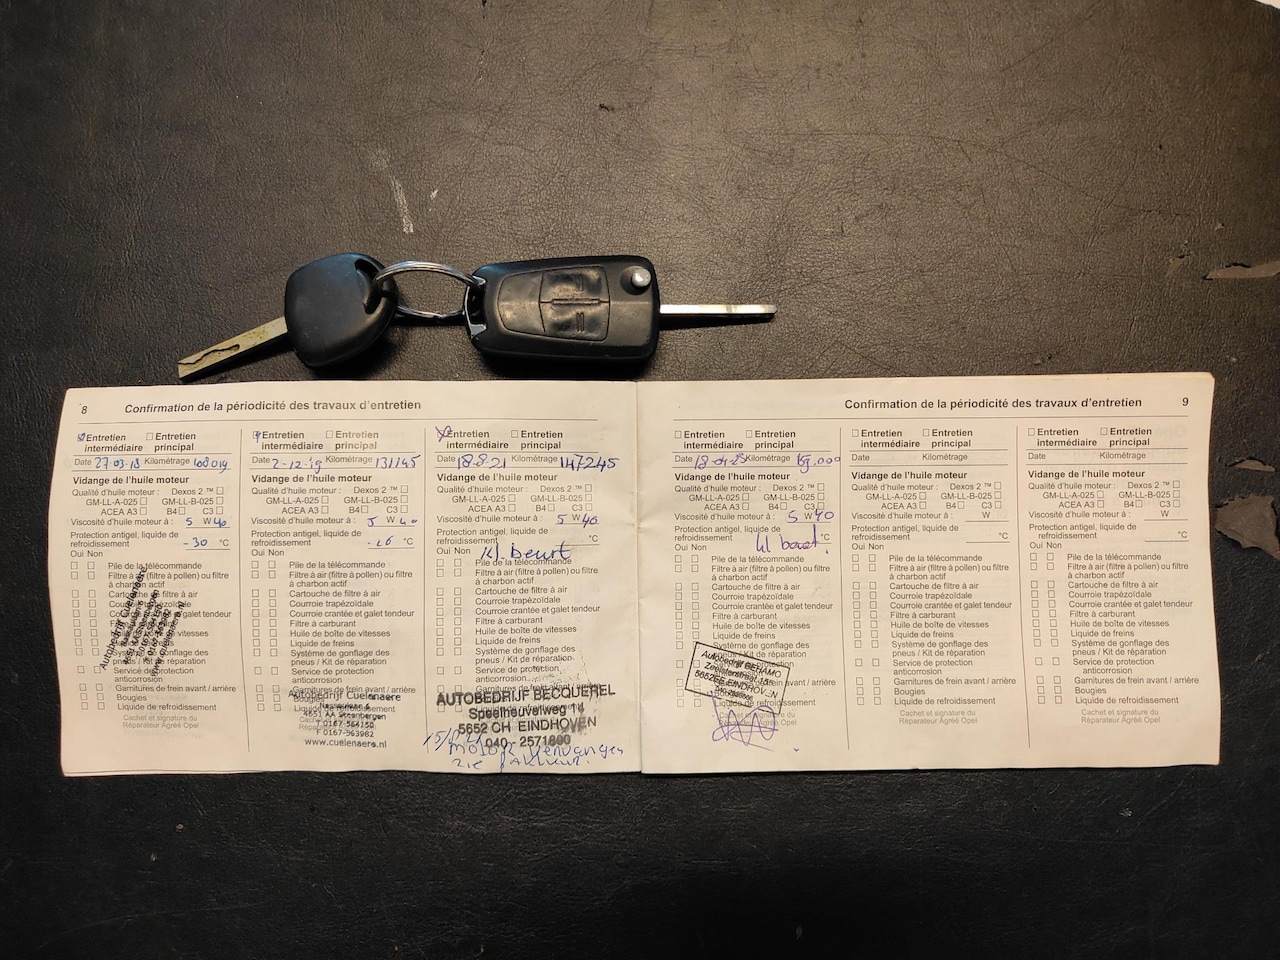 8 Confirmation de la périodicité des travaux d'entretien
Entretien intermédiaire
Entretien principal
Date 27-03-18 Kilométrage 108019
Vidange de l'huile moteur
Qualité d'huile moteur : Dexos 2 ™
GM-LL-A-025 GM-LL-B-025
ACEA A3 B4 C3
Viscosité d'huile moteur à : 5 W 40
Protection antigel, liquide de
refroidissement -30 °C
Oui Non
Pile de la télécommande
Filtre à air (filtre à pollen) ou filtre
à charbon actif
Cartouche de filtre à air
Courroie trapézoïdale
Courroie crantée et galet tendeur
Filtre à carburant
Huile de boîte de vitesses
Liquide de freins
Système de gonflage des
pneus / Kit de réparation
Service de protection
anticorrosion
Garnitures de frein avant / arrière
Bougies
Liquide de refroidissement
Cachet et signature du
Réparateur Agréé Opel
Autobedrijf Cuelenaere
www.cuelenaere.nl
Entretien intermédiaire
Entretien principal
Date 2-12-19 Kilométrage 131145
Vidange de l'huile moteur
Qualité d'huile moteur : Dexos 2 ™
GM-LL-A-025 GM-LL-B-025
ACEA A3 B4 C3
Viscosité d'huile moteur à : 5 W 40
Protection antigel, liquide de
refroidissement -26 °C
Oui Non
Pile de la télécommande
Filtre à air (filtre à pollen) ou filtre
à charbon actif
Cartouche de filtre à air
Courroie trapézoïdale
Courroie crantée et galet tendeur
Filtre à carburant
Huile de boîte de vitesses
Liquide de freins
Système de gonflage des
pneus / Kit de réparation
Service de protection
anticorrosion
Garnitures de frein avant / arrière
Autobedrijf Cuelenaere
4651 AA Steenbergen
T 0167-564150
F 0167-563982
www.cuelenaere.nl
Entretien intermédiaire
Entretien principal
Date 18-8-21 Kilométrage 147245
Vidange de l'huile moteur
Qualité d'huile moteur : Dexos 2 ™
GM-LL-A-025 GM-LL-B-025
ACEA A3 B4 C3
Viscosité d'huile moteur à : 5 W 40
Protection antigel, liquide de
refroidissement °C
Oui Non Kl. beurt
Pile de la télécommande
Filtre à air (filtre à pollen) ou filtre
à charbon actif
Cartouche de filtre à air
Courroie trapézoïdale
Courroie crantée et galet tendeur
Filtre à carburant
Huile de boîte de vitesses
Liquide de freins
Système de gonflage des
pneus / Kit de réparation
Service de protection
anticorrosion
AUTOBEDRIJF BECQUEREL
Speelheuvelweg 14
5652 CH EINDHOVEN
040 - 2571800
motor vervangen
zie faktuur.
Confirmation de la périodicité des travaux d'entretien 9
Entretien intermédiaire
Entretien principal
Date Kilométrage
Vidange de l'huile moteur
Qualité d'huile moteur : Dexos 2 ™
GM-LL-A-025 GM-LL-B-025
ACEA A3 B4 C3
Viscosité d'huile moteur à : 5 W 40
Protection antigel, liquide de
refroidissement °C
Oui Non Kl beurt!
Pile de la télécommande
Filtre à air (filtre à pollen) ou filtre
à charbon actif
Cartouche de filtre à air
Courroie trapézoïdale
Courroie crantée et galet tendeur
Filtre à carburant
Huile de boîte de vitesses
Liquide de freins
Système de gonflage des
pneus / Kit de réparation
Autobedrijf BEHAMO
EINDHOVEN
Liquide de refroidissement
Cachet et signature du
Réparateur Agréé Opel
Entretien intermédiaire
Entretien principal
Date Kilométrage
Vidange de l'huile moteur
Qualité d'huile moteur : Dexos 2 ™
GM-LL-A-025 GM-LL-B-025
ACEA A3 B4 C3
Viscosité d'huile moteur à : W
Protection antigel, liquide de
refroidissement °C
Oui Non
Pile de la télécommande
Filtre à air (filtre à pollen) ou filtre
à charbon actif
Cartouche de filtre à air
Courroie trapézoïdale
Courroie crantée et galet tendeur
Filtre à carburant
Huile de boîte de vitesses
Liquide de freins
Système de gonflage des
pneus / Kit de réparation
Service de protection
anticorrosion
Garnitures de frein avant / arrière
Bougies
Liquide de refroidissement
Cachet et signature du
Réparateur Agréé Opel
Entretien intermédiaire
Entretien principal
Date Kilométrage
Vidange de l'huile moteur
Qualité d'huile moteur : Dexos 2 ™
GM-LL-A-025 GM-LL-B-025
ACEA A3 B4 C3
Viscosité d'huile moteur à : W
Protection antigel, liquide de
refroidissement °C
Oui Non
Pile de la télécommande
Filtre à air (filtre à pollen) ou filtre
à charbon actif
Cartouche de filtre à air
Courroie trapézoïdale
Courroie crantée et galet tendeur
Filtre à carburant
Huile de boîte de vitesses
Liquide de freins
Système de gonflage des
pneus / Kit de réparation
Service de protection
anticorrosion
Garnitures de frein avant / arrière
Bougies
Liquide de refroidissement
Cachet et signature du
Réparateur Agréé Opel